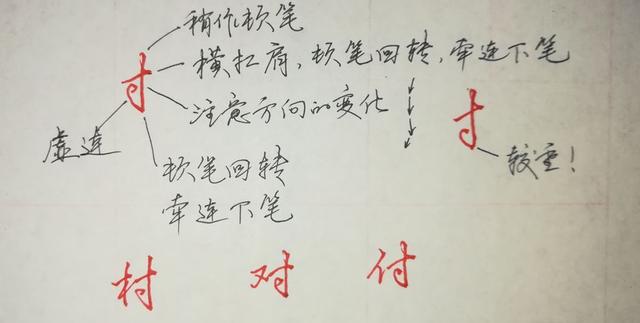 稍作顿笔
寸 横扛肩，顿笔回转，牵连下笔
注意方向的变化
寸
虚连
较重！
顿笔回转
牵连下笔
村 对 付